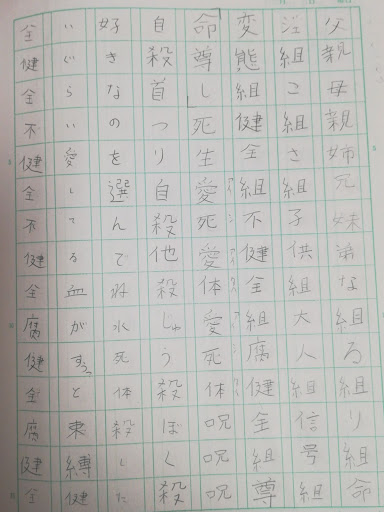 父親母親姉兄妹弟な組る組り組命
組こ組さ組子供組大人組信号組
変態組健全組不健全組腐健全組尊
「命尊し」死生愛死愛体愛死体呪呪呪
自殺首つり自殺他殺じゅう殺ぼく殺
好きなのを選んでね水死体殺した
いぐらい愛してる血がずうっと束縛健
全健全不健全不健全腐健全腐健全